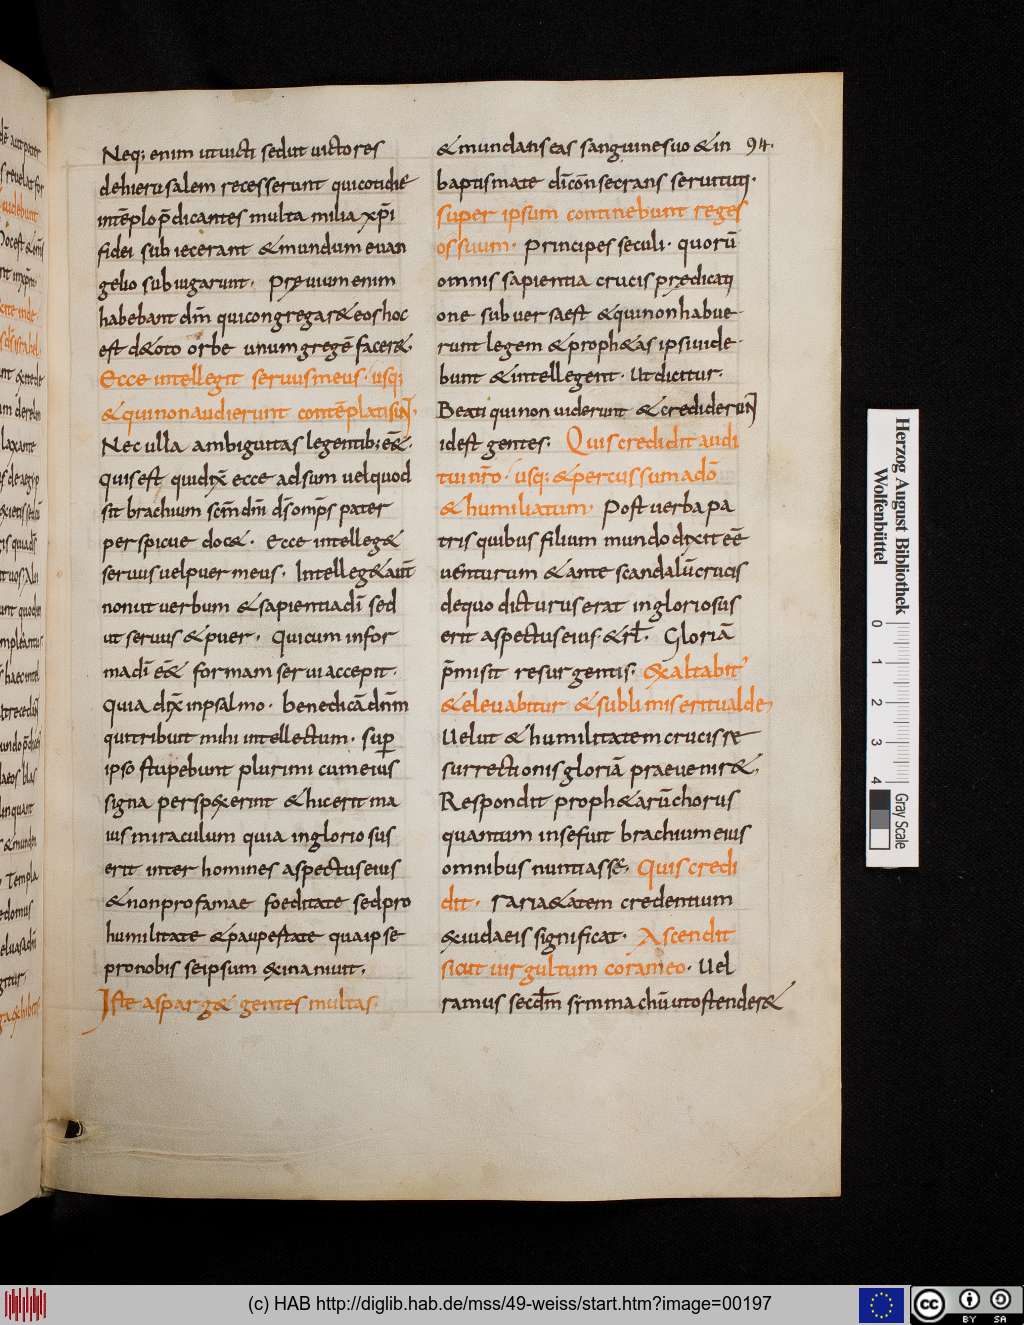 Neq; enim utuicti sedut uictores
dehierusalem recesserunt quicotidie
intēplop̄dicantes multa milia xp̄i
fidei subiecerant &mundum euan
gelio subiugarunt. Prȩuium enim
habebant dn̄m quicongregar& eoshoc
est d&oto orbe unum gregē facer&.
Ecce intellegit seruusmeus. usq;
&quinonaudierunt contēplatisunt.
Nec ulla ambiguitas legentib; ēē.
quisest quidix̄ ecce adsum uelquod
sit brachium scm̄ dn̄i ds̄omp̄s pater
perspicue doc&. Ecce intelleg&
seruusuelpuer meus. Intelleg& aut̄
nonut uerbum &sapientiadī sed
ut seruus &puer. Quicum infor
madī ēē& formam serui accepit.
quia dix̄ inpsalmo. benedicā dn̄m
quitribuit mihi intellectum. sup̄
ipso stupebunt plurimi cumeius
signa persp&erint &hicerit ma
ius miraculum quia inglorio sus
erit inter homines aspectuseius
&nonprofamae foeditate sedpro
humilitate &paupestate quaipse
pronobis seipsum &inaniuit.
Iste asparg& gentes multas.
&mundanseas sanguinesuo &in
94.
baptismate dīcōnsecrans seruituti.
super ipsum continebunt reges
os suum. Principes seculi. quorū
omnis sapientia crucis prȩdicati
one subuersaest &quinonhabue
runt legem &proph&as ipsiuide
bunt &intellegent. Ut dicitur.
Beati quinon uiderunt &crediderunt
idest gentes. Quis credidit audi
tui nr̄o. usq; &percussum adō
&humiliatum. Post uerba pa
tris quibus filium mundo dixit ēē
uenturum &ante scandalū crucis
dequo dicturus erat ingloriosus
erit aspectuseius &rl̄. Gloriā
p̄misit resurgentis. Exaltabit'
&eleuabitur &sublimis eritualde,
Uelut &humilitatem crucis re
surrectionis gloriā praeuenir&,
Respondit proph&arū chorus
quantum insefuit brachium eius
omnibus nuntiasse. Quis credi
dit. raria&atem credentium
&iudaeis significat. Ascendit
sicut uirgultum corameo. Uel
ramus secdm̄ symmachū utostender&
Herzog August Bibliothek
Wolfenbüttel
0
1
2
3
4
Gray Scale
(c) HAB http://diglib.hab.de/mss/49-weiss/start.htm?image=00197
cc
BY
SA